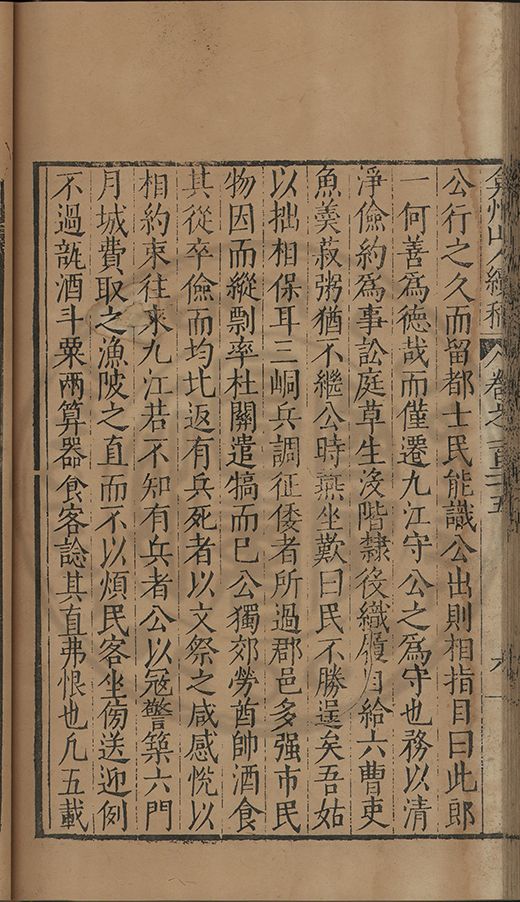 弇州山人續稿 卷之一百二十五 六
公行之久而留都士民能識公出則相指目曰此郎
一何善爲德哉而僅遷九江守公之爲守也務以清
淨儉約爲事訟庭草生沒階隸後織屨自給六曹吏
魚羹菽粥猶不繼公時燕坐歎曰民不勝逞矣吾姑
以拙相保耳三峒兵調征倭者所過郡邑多强市民
物因而縱剽率杜關遣犒而已公獨郊勞酋帥酒食
其從卒儉而均比返有兵死者以文祭之咸感悅以
相約束往來九江若不知有兵者公以寇警築六門
月城費取之漁陂之直而不以煩民客坐傍送迎例
不過瓿酒斗粟兩算器食客諗其直弗恨也凡五載